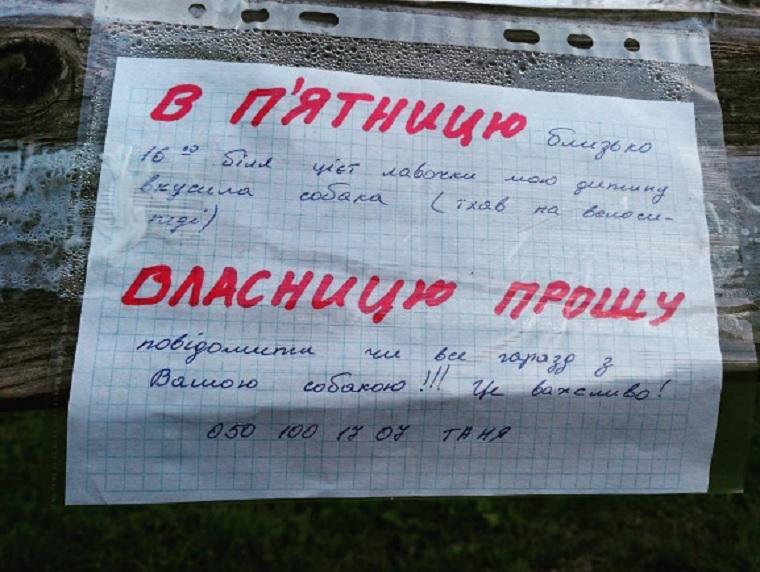 В П'ЯТНИЦЮ близько
16 00 біля цієї лавочки мою дитину
вкусила собака (їхав на велоси-
педі)
ВЛАСНИЦЮ ПРОШУ
повідомити чи все гаразд з
Вашою собакою!!! Це важливо!
050 100 17 07 ТАНЯ